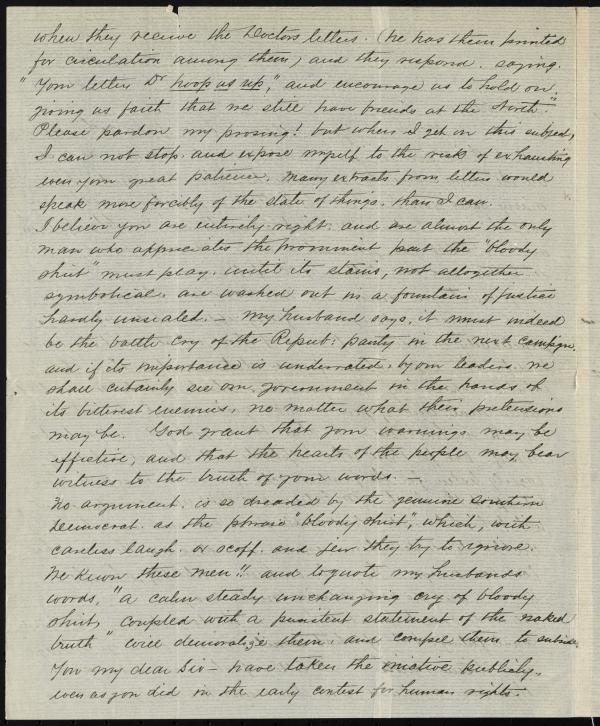 when they receive the Doctors letters. (he has them printed
for circulation among them) and they respond. saying.
"Your letters Dr hoop us up", and encourage us to hold on,
giving us faith that we still have friends at the North."
Please pardon my prosing! but when I get on this subject,
I can not stop. and expose myself to the risk of exhausting
even your great patience. Many extracts from letters would
speak more forcibly of the state of things, than I can.
I believe you are entirely right. and are almost the only
man who appreciates the prominent part the "bloody
shirt" must play. until its stains, not altogether
symbolical, are washed out in a fountain of justice
hardly unsealed. — My husband says, it must indeed
be the battle cry of the Repub: party in the next campign.
and if its importance is underrated, by our leaders. we
shall certainly see our government in the hands of
its bitterest enemies, no matter what their pretensions
may be. God grant that your warnings may be
effective, and that the hearts of the people may bear
witness to the truth of your words. —
No argument. is so dreaded by the genuine southern
Democrat. as the phrase "bloody shirt", which, with
careless laugh. or scoff. and jeer they try to ignore.
We know these men!! and to quote my husbands
words, "a calm steady unchanging cry of bloody
shirt, coupled with a persistent statement of the naked
truth" will demoralize them. and compel them to subside
You my dear Sir — have taken the iniative publicly,
even as you did in the early contest for human rights.